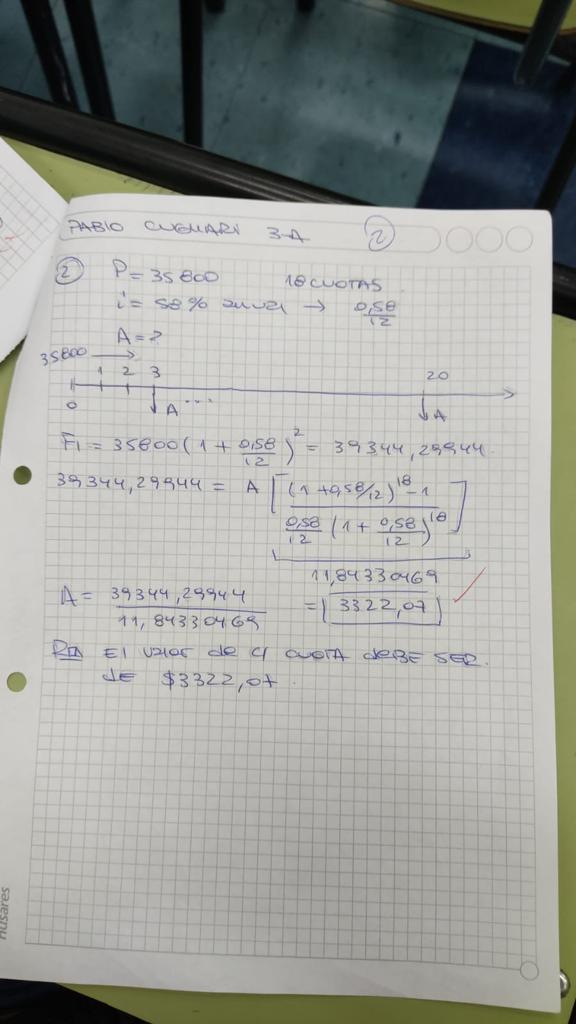 PABLO CUGLIARI 3-A 2
2 P = 35800 18 CUOTAS
i = 58% anual → 0,58/12
A = ?
35800 → 1 2 3 20
0 A ... A
F1 = 35800 (1 + 0,58/12)^2 = 39344,29944.
39344,29944 = A [ (1 + 0,58/12)^18 - 1 / 0,58/12 (1 + 0,58/12)^18 ]
11,84330469
A = 39344,29944 / 11,84330469 = 3322,07
Rta El valor de c/ cuota debe ser.
de $3322,07.
Húsares